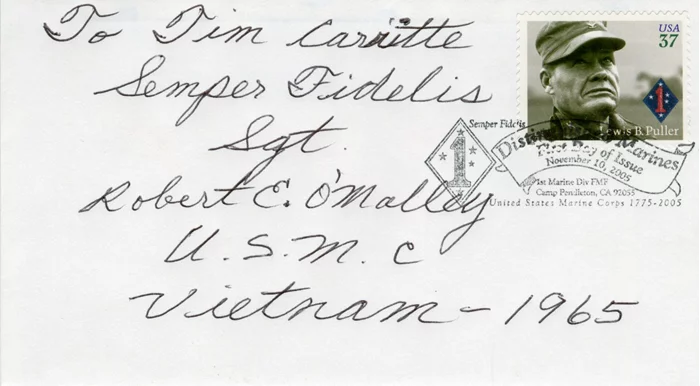 To Tim Carritte
Semper Fidelis
Sgt.
Robert E. O'Malley
U.S.M.C
Vietnam - 1965
USA
37
1
Lewis B. Puller
Semper Fidelis
1
Marines
First Day of Issue
November 10, 2005
1st Marine Div FMF
Camp Pendleton, CA 92055
United States Marine Corps 1775-2005